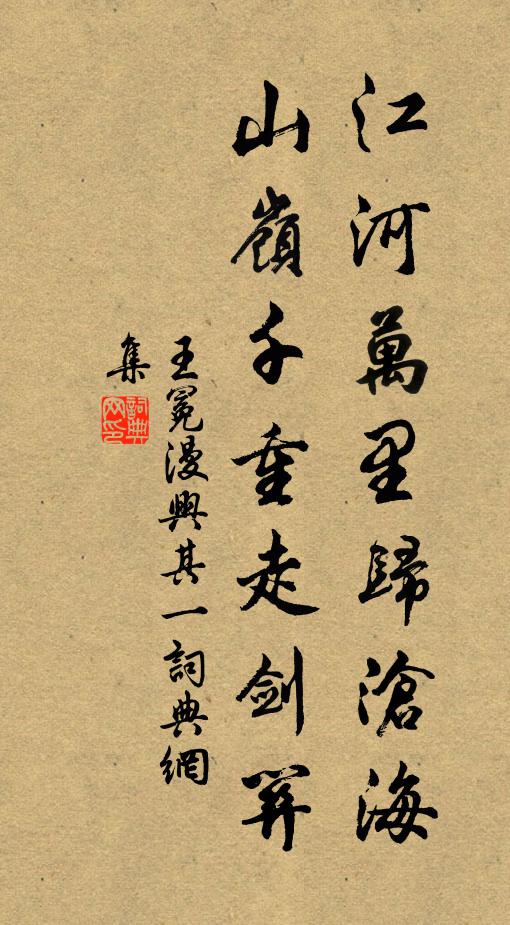 江河萬里歸滄海
山嶺千重走劍關
王冕漫興其一詞典網
集
詞典网印